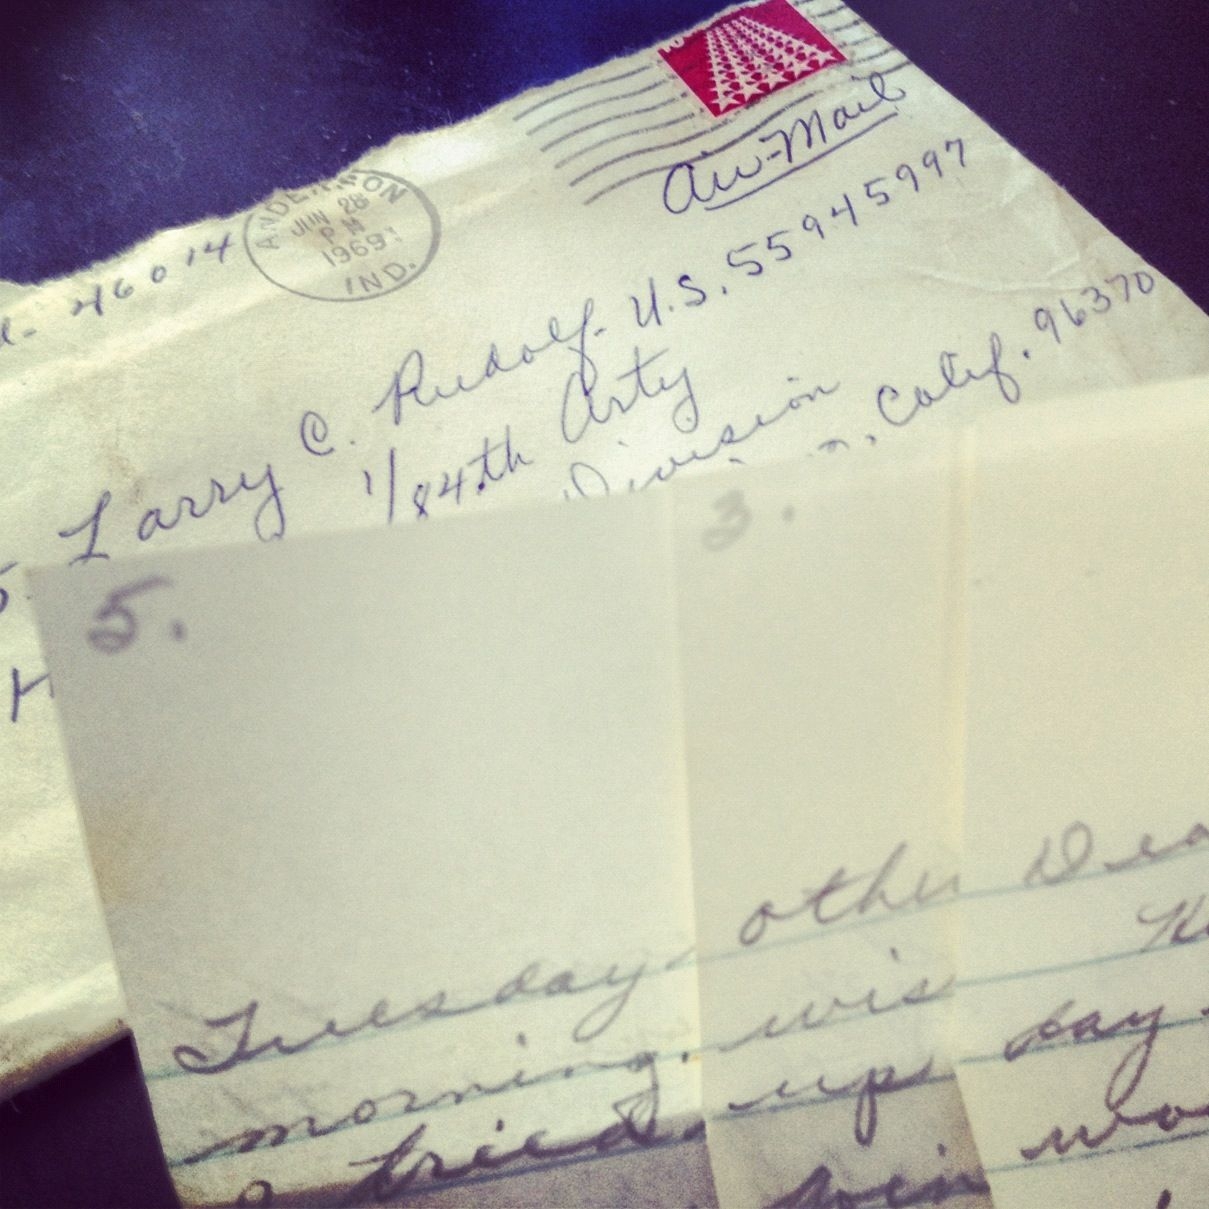 Air-Mail
ANDERSON
JUN 28
PM
1969
IND.
46014
Larry C. Rudolf- U.S. 55945997
1/84th Arty
Division
Calif. 96370
5.
Tuesday
morning.
I tried
3.
other
wis
up
win
Dea
day
wo